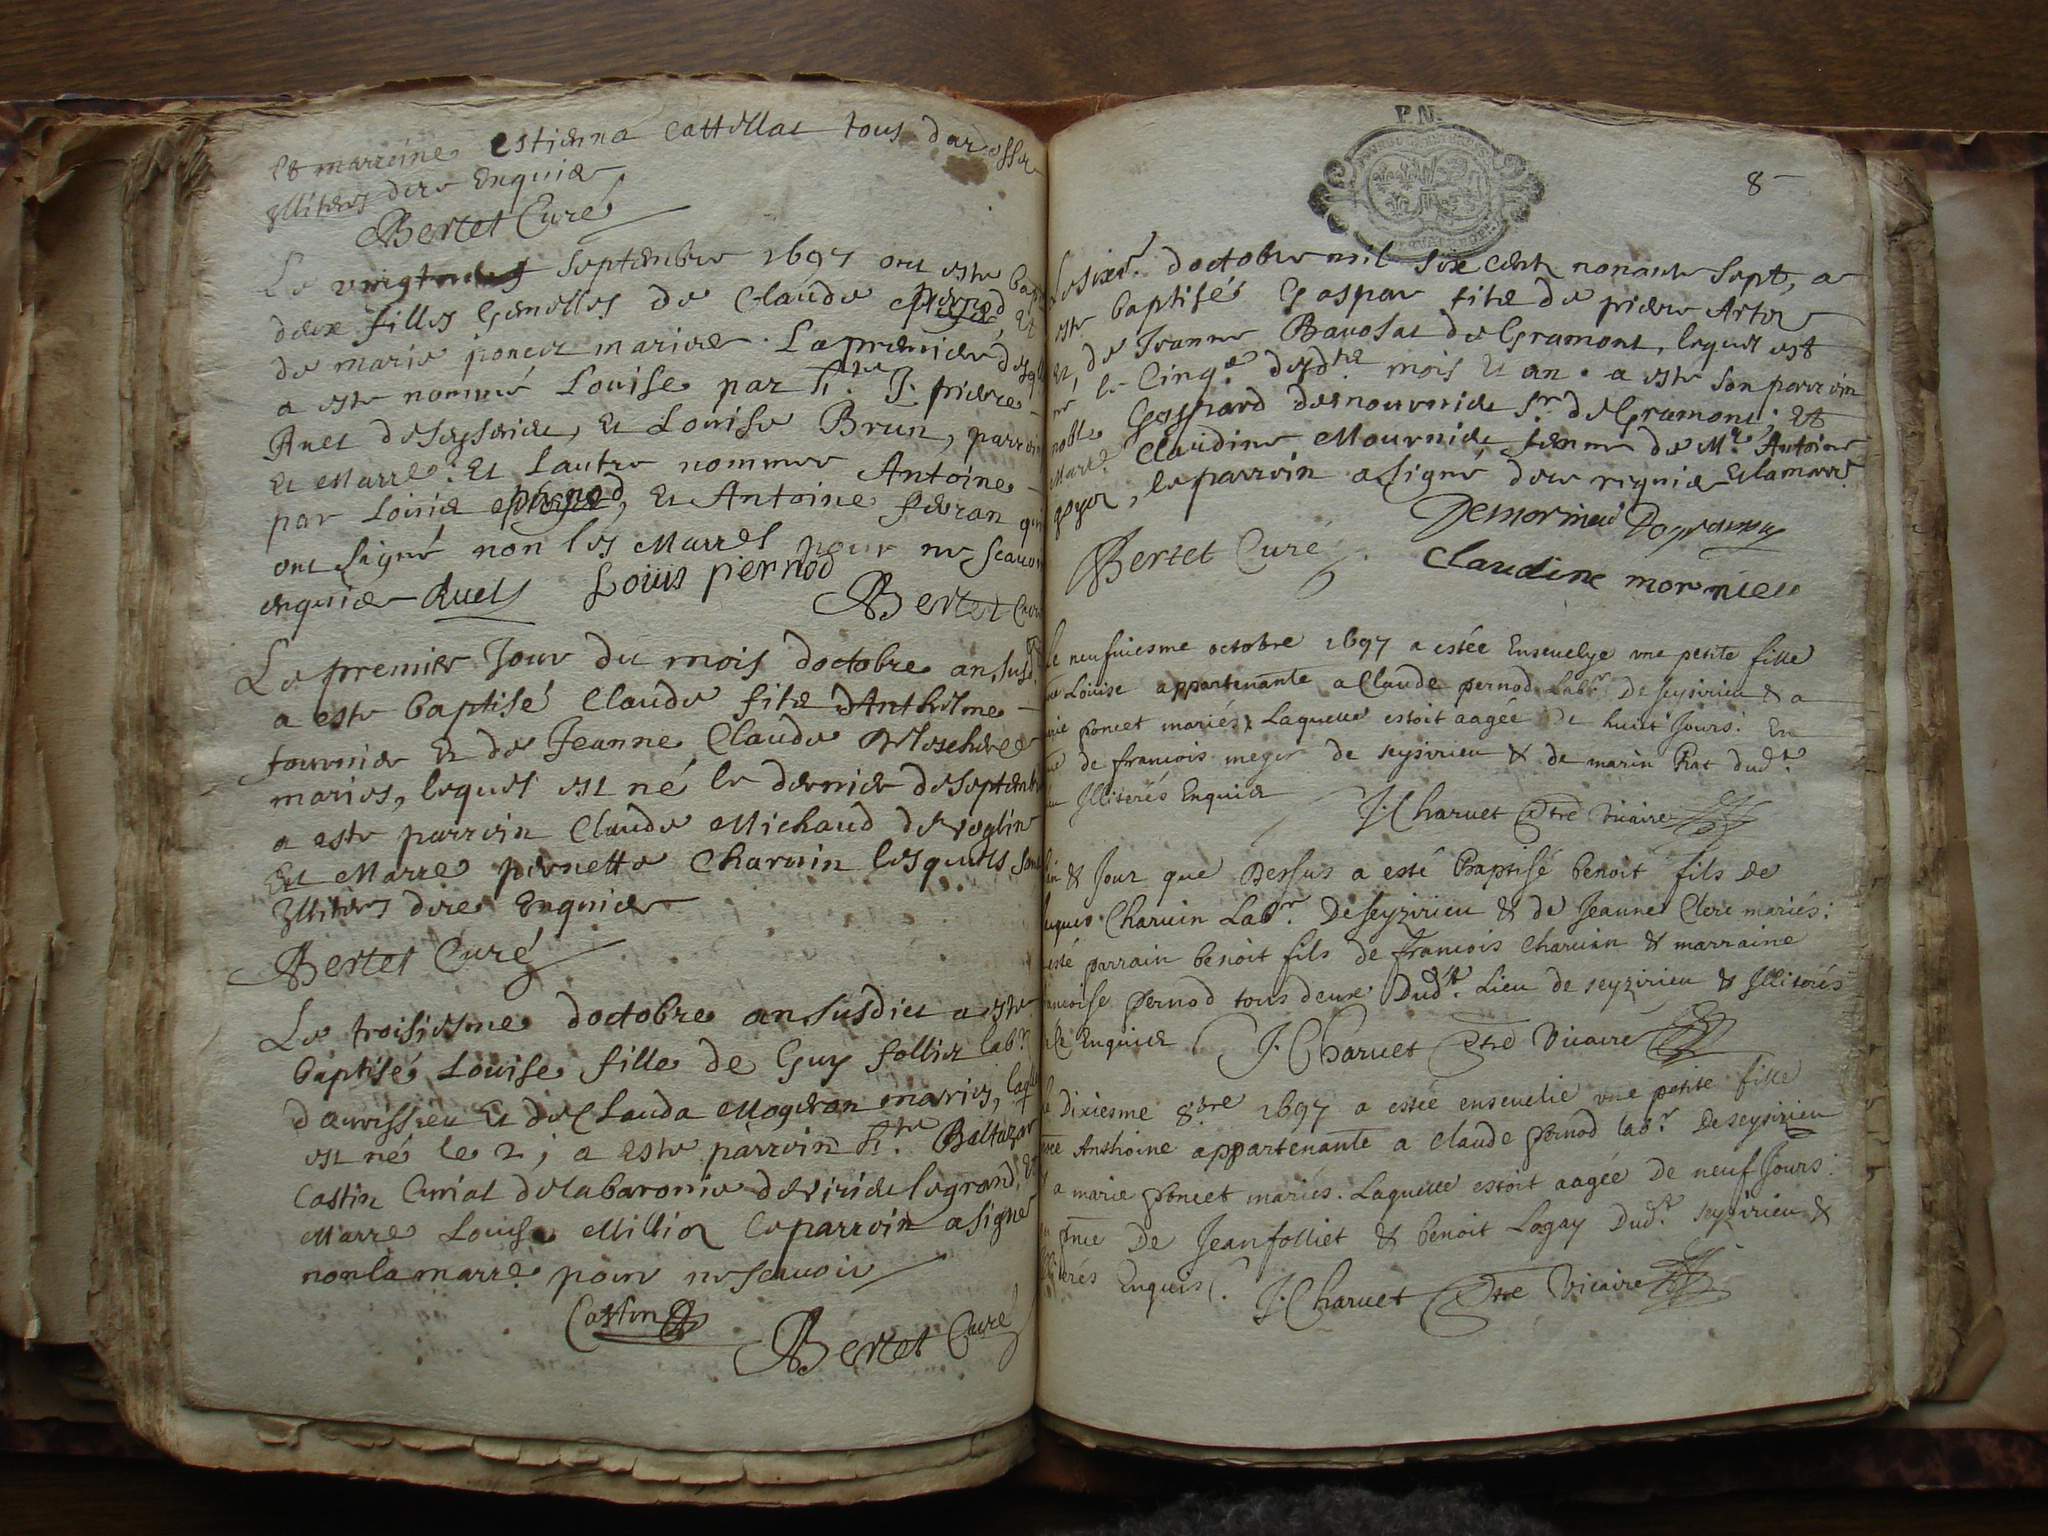 Et marreine estienna Cattellat tous dar
Illiteres dere Enquis
Bertet Curé
Le septembre 1697 ont este bap
deux filles Gemelles de Claude pernod Et
de marie poncet maries. La premiere des
a este nommé Louise par h.te J. pierre
Ruet de seysseriet, Et Louise Brun, parrein
Et Marre. Et lautre nommee Antoine
par Louis pernod, Et Antoine qui
ont signé non les Marres pour ne scavoir
enquis Ruets Louis pernod
Bertet Curé
Le premier Jour du mois doctobre an susd.
a este baptisé Claude filz dAnthelme
fournier Et de Jeanne Claude
maries, lequel est né le dernier de septembre
a este parrein Claude Michaud de veglin
Et Marre pernette Charvin lesquels sont
Illiteres dere Enquis
Bertet Curé
Le troisiesme doctobre an susdict a este
baptisé Louise fille de Guy follier lab.r
Et de Clauda maries, laq
est né le 2 ; a este parrein h.te Baltazar
Castin Curial de la baronie de viriel le grand, Et
Marre Louise Millioz le parrein a signé
non la marre pour ne scavoir
Castin
Bertet Curé
P. N.
8
Le sixe. doctobre mil six cent nonante sept, a
este baptisés Gaspar filz de pierre
Et, de Jeanne Bavosat de Gramont, lequel est
né le Cinq.e dudt mois Et an. a este son parrein
noble Gaspard demournieu Sr de Gramont; Et
Marre Claudine Mournieu femme de M.e Antoine
, le parrein a signé dere Et la marre
Bertet Curé Claudine mornieu
Le neufuiesme octobre 1697 a estée Enseuelye une petite fille
Louise appartenante a Claude pernod Lab.r De seysirieu & a
marie poncet mariés, Laquelle estoit aagée de huict Jours. En
de francois meger de seysirieu & de marin Rat dud.t
lieu Illiterés Enquis
J. Charuet ptre Vicaire
& Jour que Dessus a esté baptisé benoit fils de
Charuin Lab.r De seyzirieu & de Jeanne Clerc mariés:
esté parrain benoit fils de francois Charuin & marraine
francoise pernod tous deux Dud.t Lieu de seyzirieu & Illiterés
Enquis J. Charuet ptre Vicaire
Le Dixiesme 8bre 1697 a estée enseuelie une petite fille
Anthoine appartenante a Claude pernod lab.r De seysirieu
& a marie poncet mariés. Laquelle estoit aagée de neuf Jours:
pnce De Jean folliet & benoit Lagay Dud.t seyzirieu &
Illiterés Enquis J. Charuet ptre Vicaire